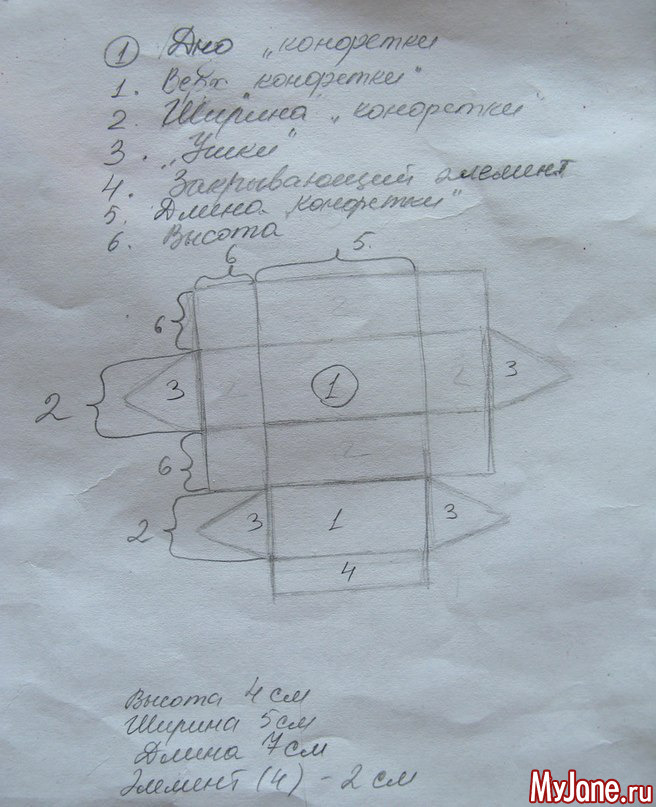 ① Дно „конфетки
1. Верх "конфетки"
2. Ширина „конфетки"
3. „Ушки"
4. Закрывающий элемент
5. Длина „конфетки"
6. Высота
6 5
6 2
2 3 2 ① 2 3
6 2
2 3 1 3
4
Высота 4 см
Ширина 5 см
Длина 7 см
Элемент (4) - 2 см
MyJane.ru